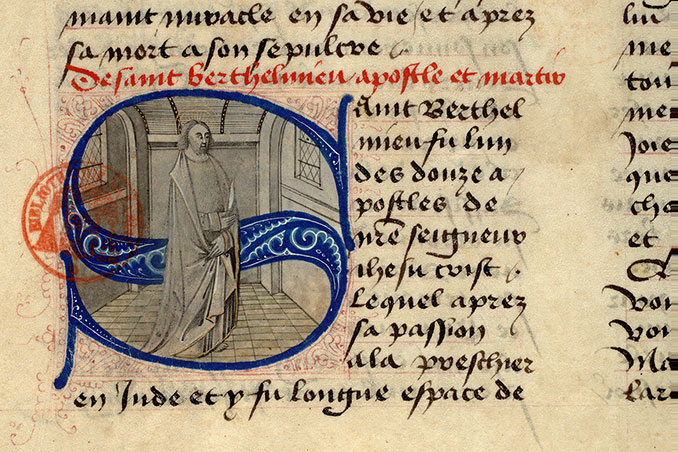 maint miracle en sa vie et aprez
sa mort a son sepulcre
De saint Berthelmieu apostle et martir
Saint Berthel
mieu fu lun
des douze a
postles de
nre seigneur
ihesu crist
lequel aprez
sa passion
ala preschier
en Inde et y fu longue espace de
lui
me
tou
me
Joie
que
cha
et
voi
voi
Ma
lar